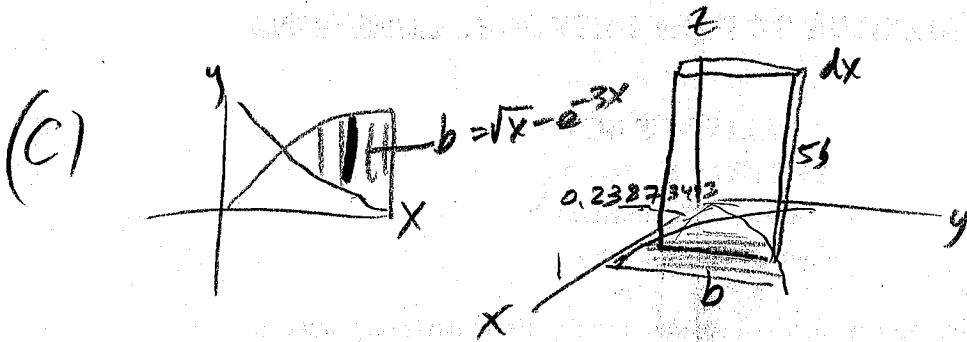 (C)
y
b = √x - e^{-3x}
x
z
dx
5b
0.2387341
y
1
b
x